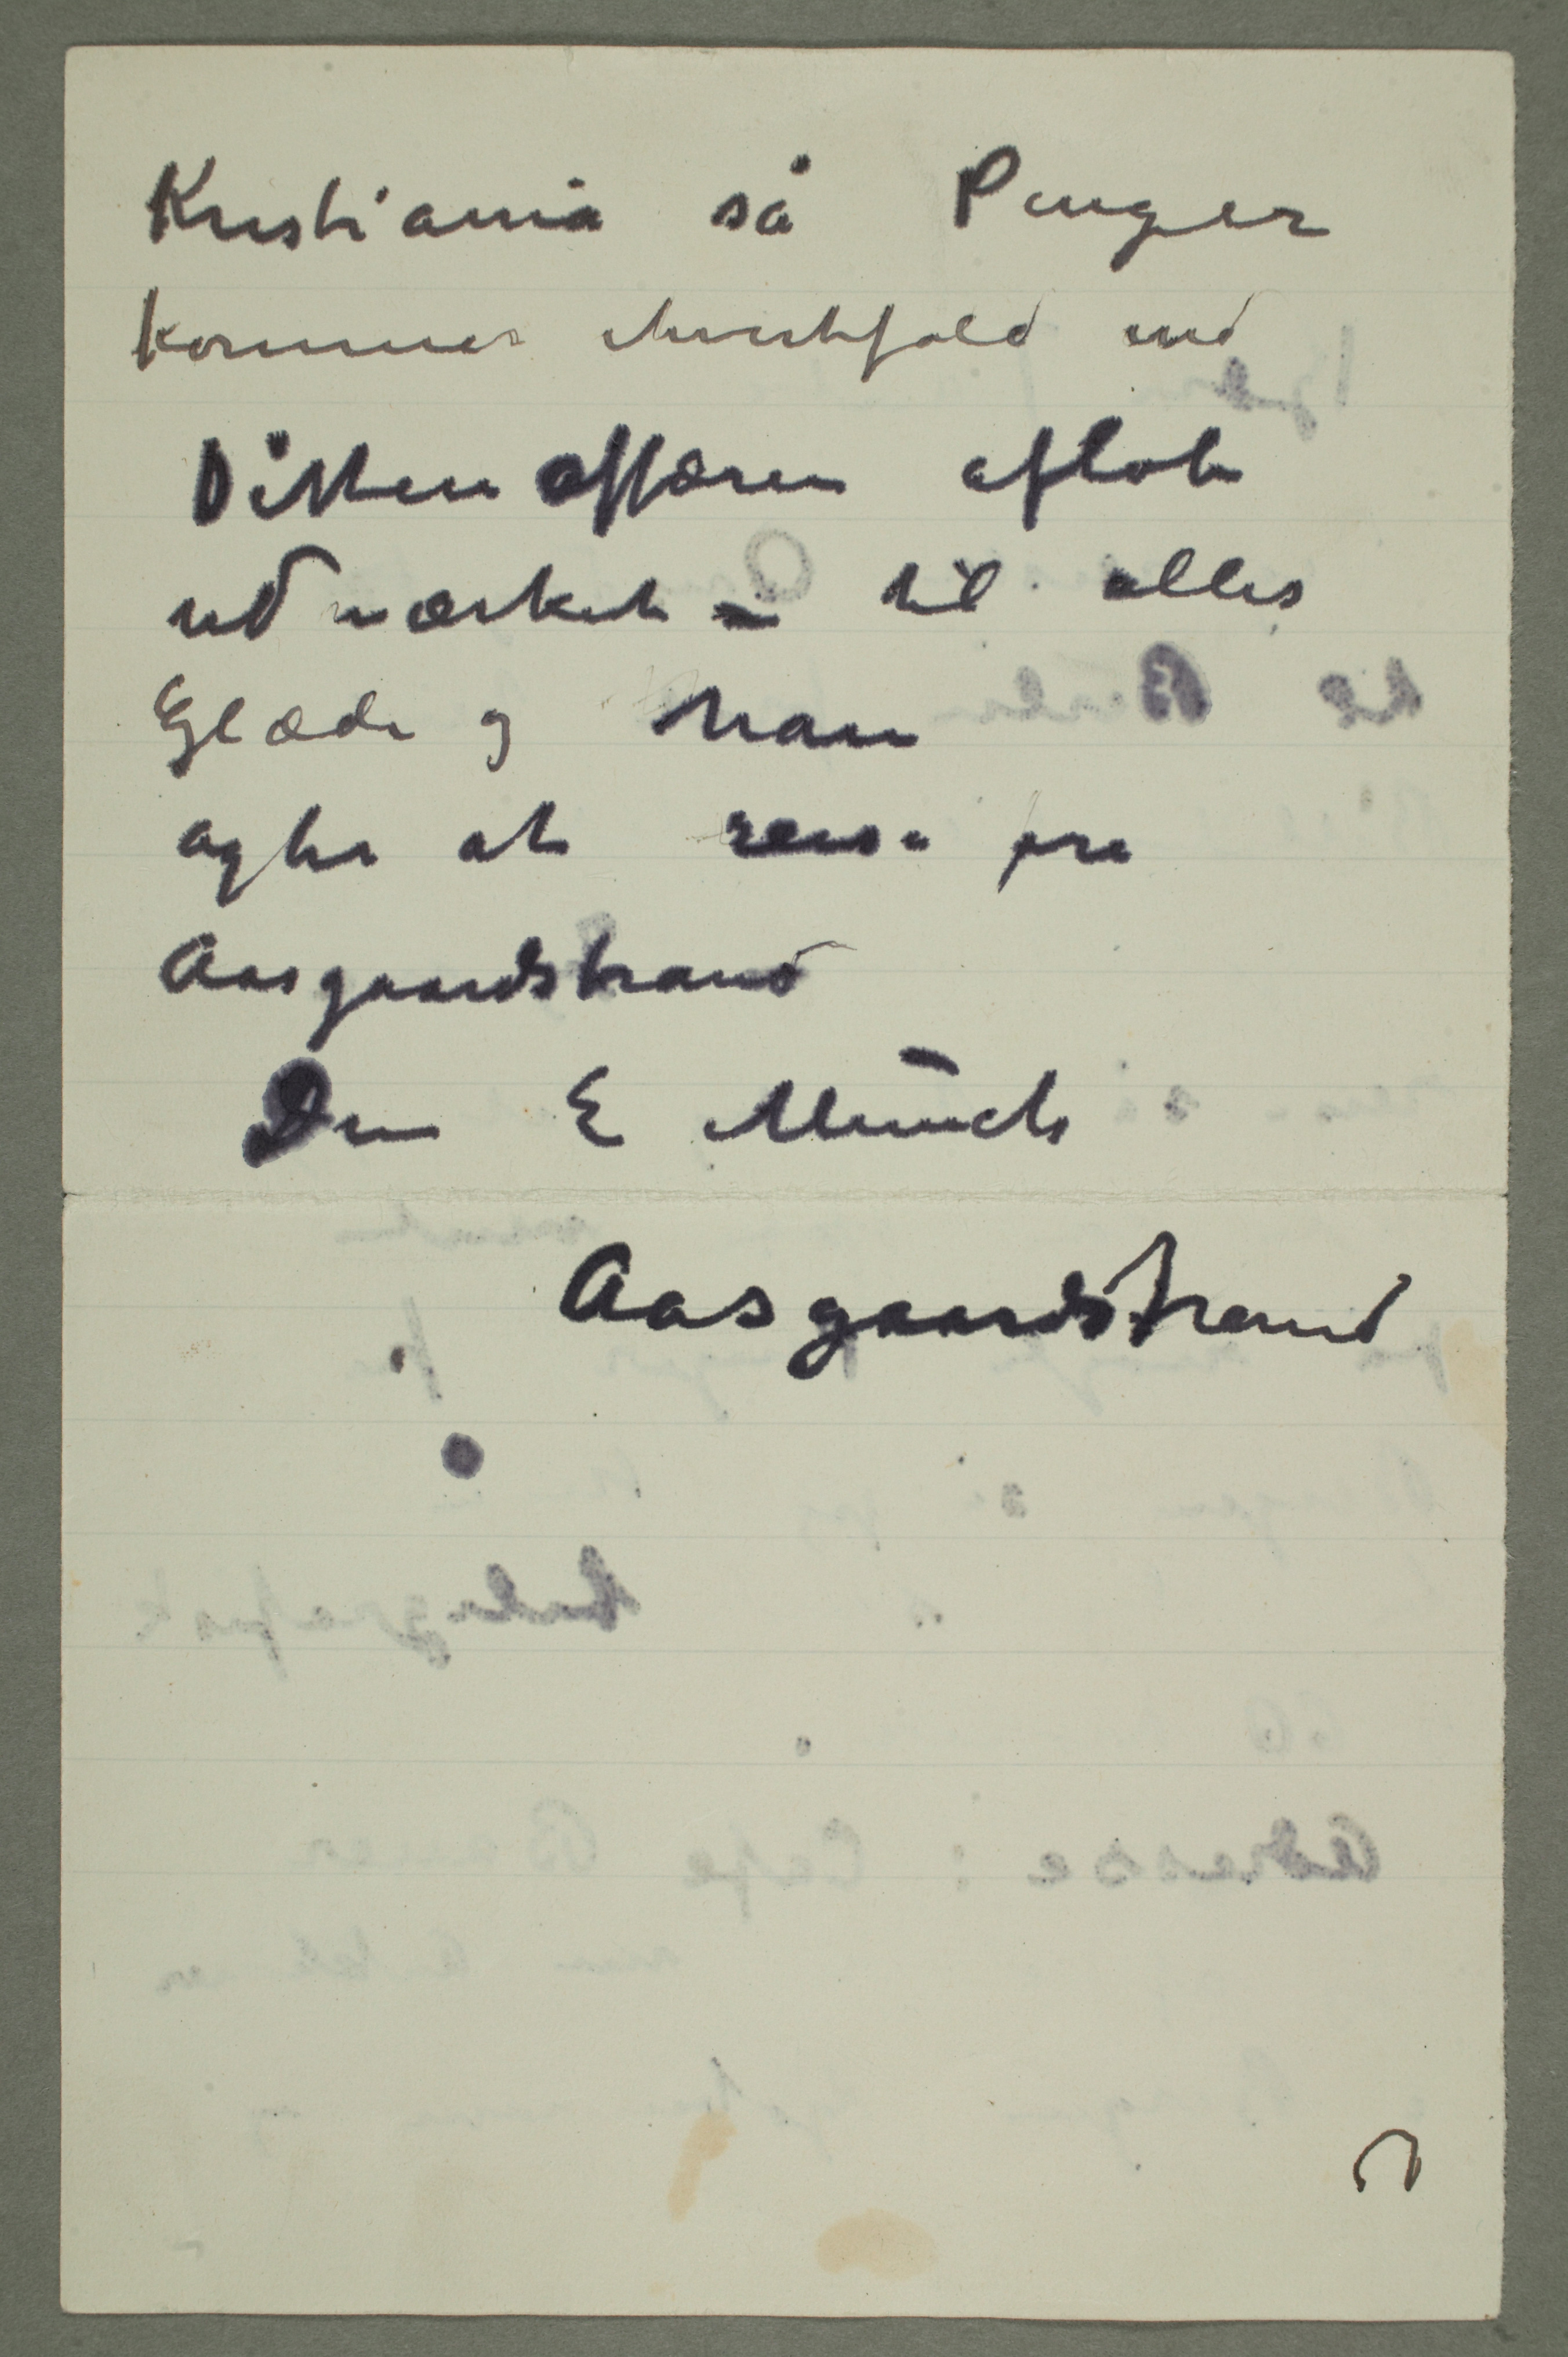 Kristiania så Penger
kommer ihvertfald ind
Dittenaffæren afløb
udmærket – til alles
Glæde og han
agter at reise fra
Aasgaardstrand
Din E Munch
Aasgaardstrand